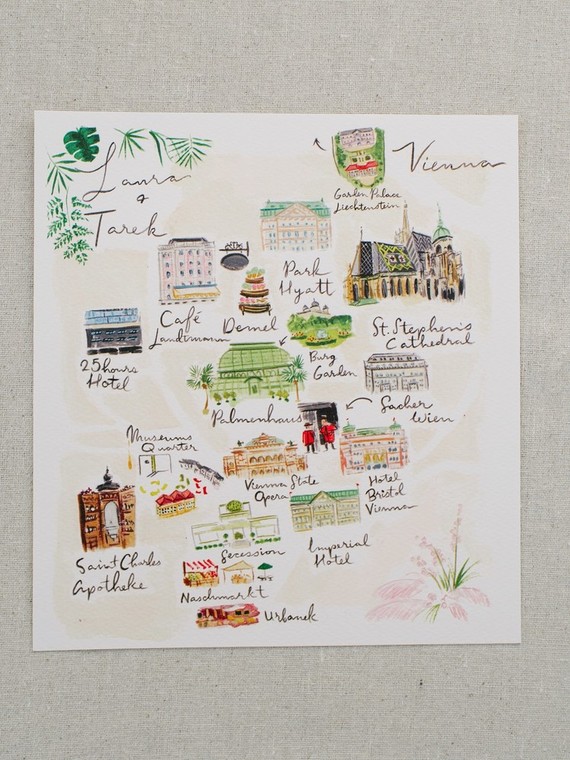 Laura
&
Tarek
Vienna
Garden Palace
Liechtenstein
Park
Hyatt
Café
Landtmann
Demel
St. Stephen's
Cathedral
25hours
Hotel
Burg
Garden
Palmenhaus
Sacher
Wien
Museums
Quarter
Vienna State
Opera
Hôtel
Bristol
Vienna
Saint Charles
Apotheke
Secession
Imperial
Hotel
Naschmarkt
Urbanek